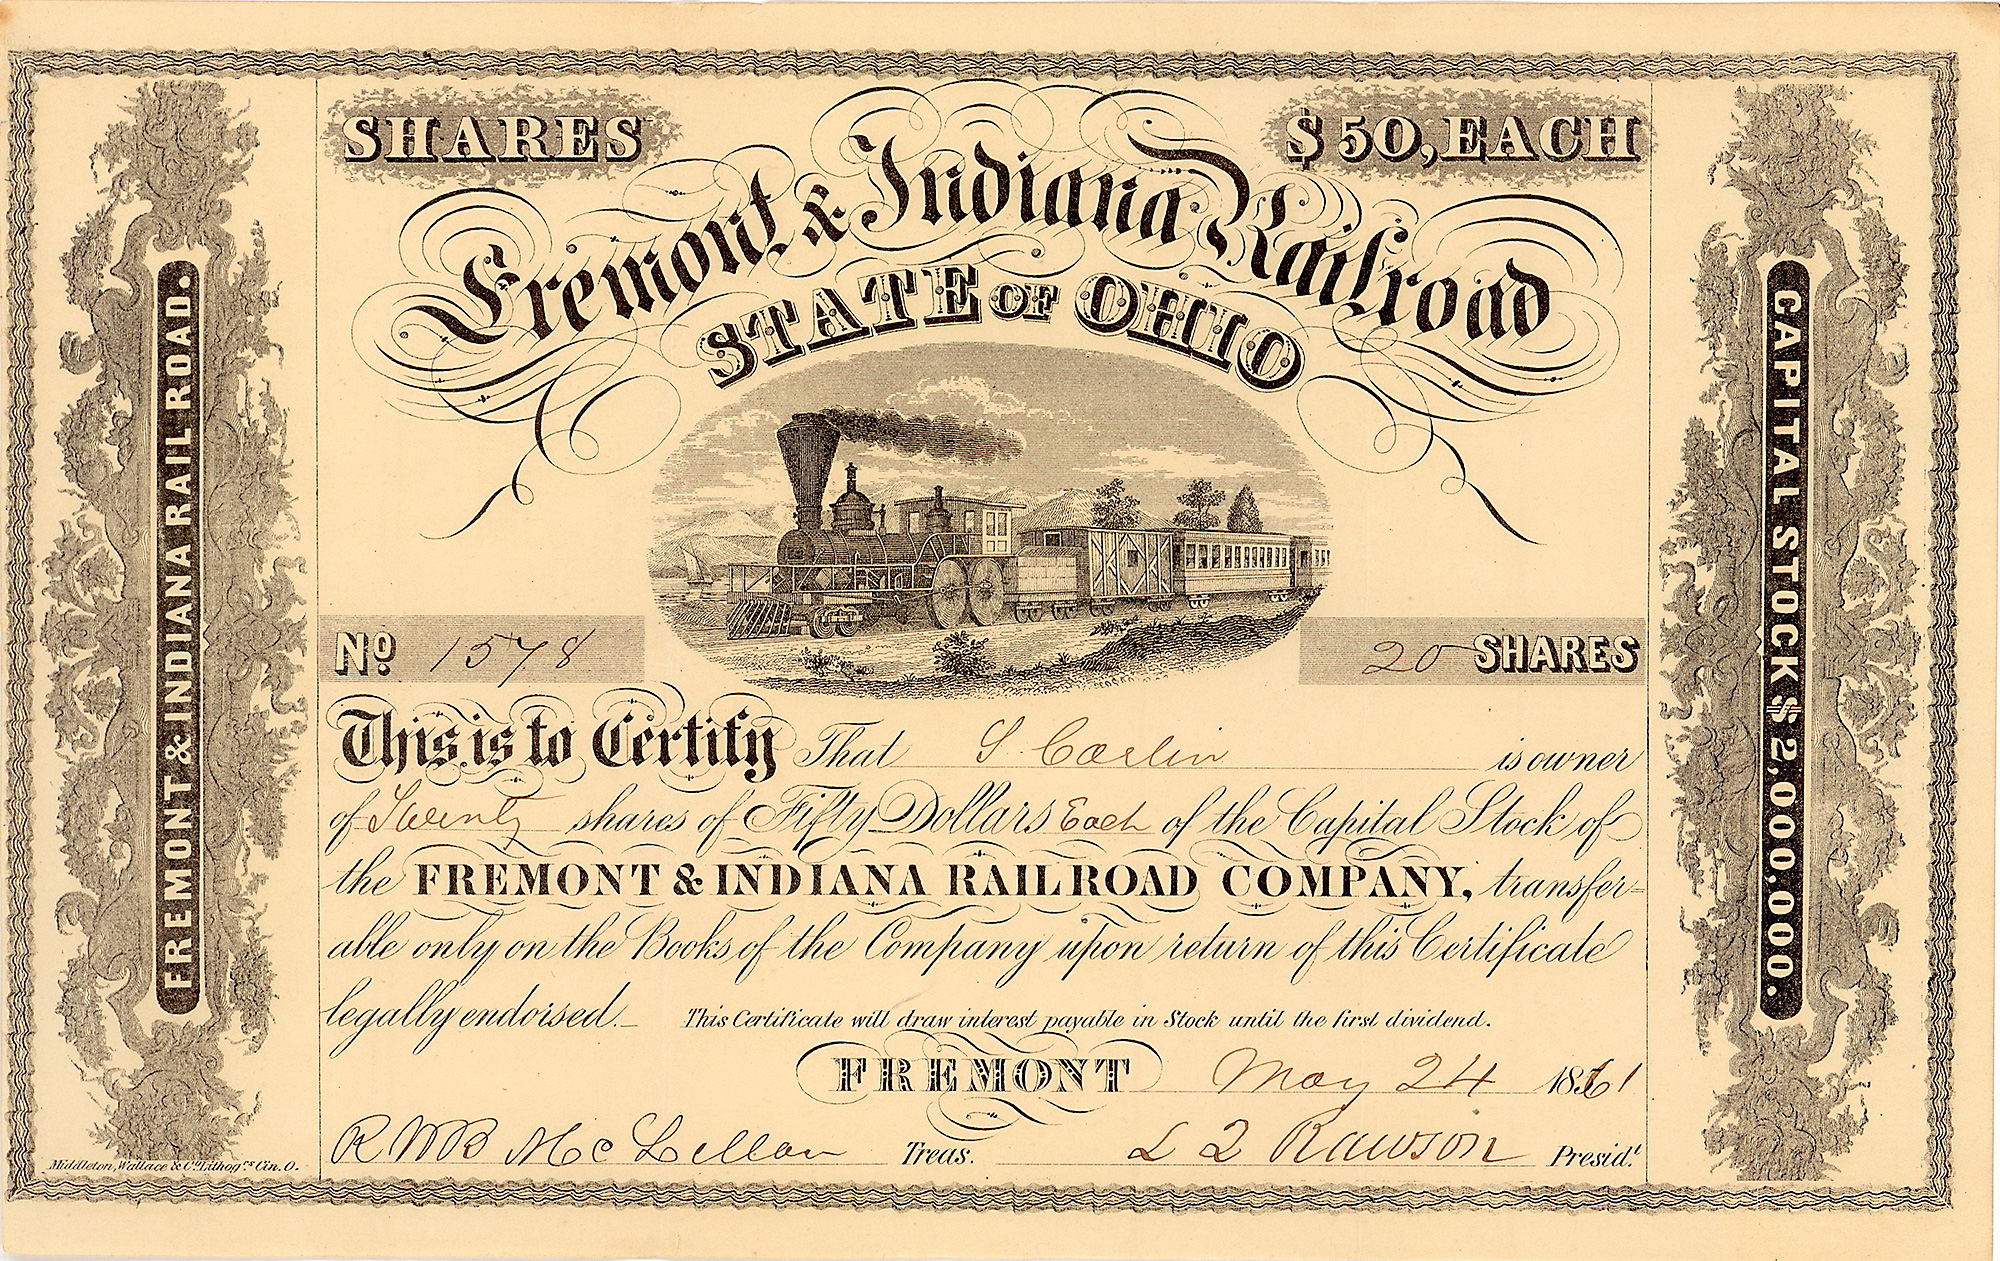 SHARES
$50, EACH
Fremont & Indiana Railroad
STATE OF OHIO
FREMONT & INDIANA RAIL ROAD.
CAPITAL STOCK $2,000,000.
No. 1578
20 SHARES
This is to Certify That S. Carlin is owner
of Twenty shares of Fifty Dollars Each of the Capital Stock of
the FREMONT & INDIANA RAILROAD COMPANY, transfer-
able only on the Books of the Company upon return of this Certificate
legally endorsed. This Certificate will draw interest payable in Stock until the first dividend.
FREMONT May 24 1861
R W B McLellan Treas. L Q Rawson Presid.t
Middleton, Wallace & Co. Lithog.rs Cin. O.